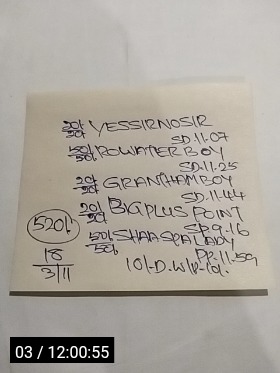 20/-
20/- YESSIRNOSIR
SD.11.07
50/-
50/- POWATERBOY
SD.11.25
20/-
20/- GRANTHAM BOY
SD.11.44
20/-
20/- BIGPLUS POINT
SP.9.16
50/-
50/-
DP.11.59
520/-
18
3/11
03 / 12:00:55